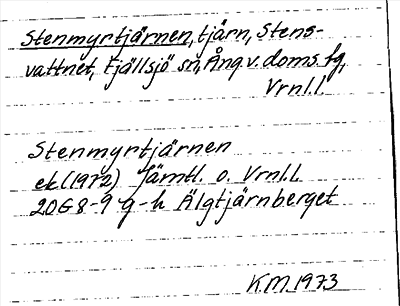 Stenmyrtjärnen, tjärn, Stens-
vattnet, Fjällsjö sn, Ång. v. doms. fg,
Vrnl. l.
Stenmyrtjärnen
ek (1972) Jämtl. o. Vrnl. l.
20G 8-9 g-h Älgtjärnberget
K.M. 1973